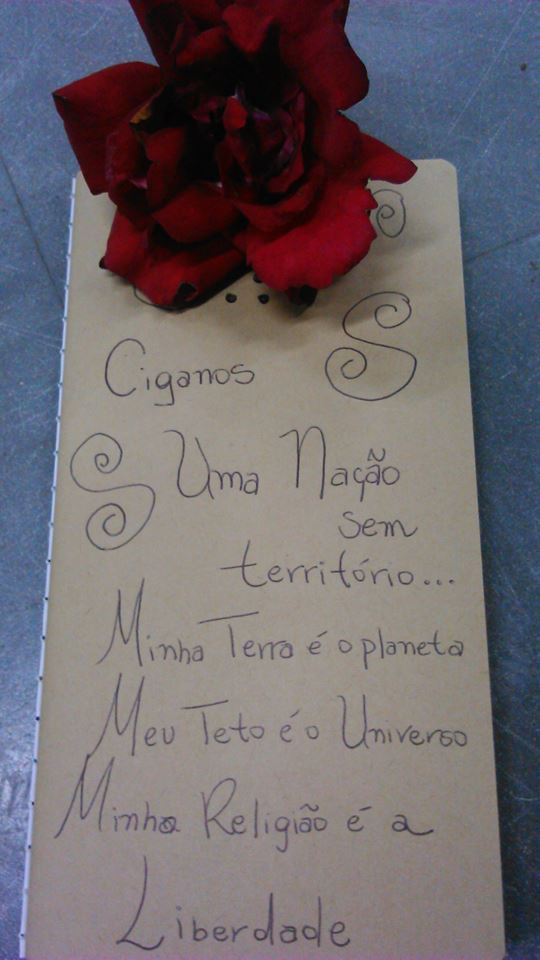 Ciganos
Uma Nação
sem
território...
Minha Terra é o planeta
Meu Teto é o Universo
Minha Religião é a
Liberdade